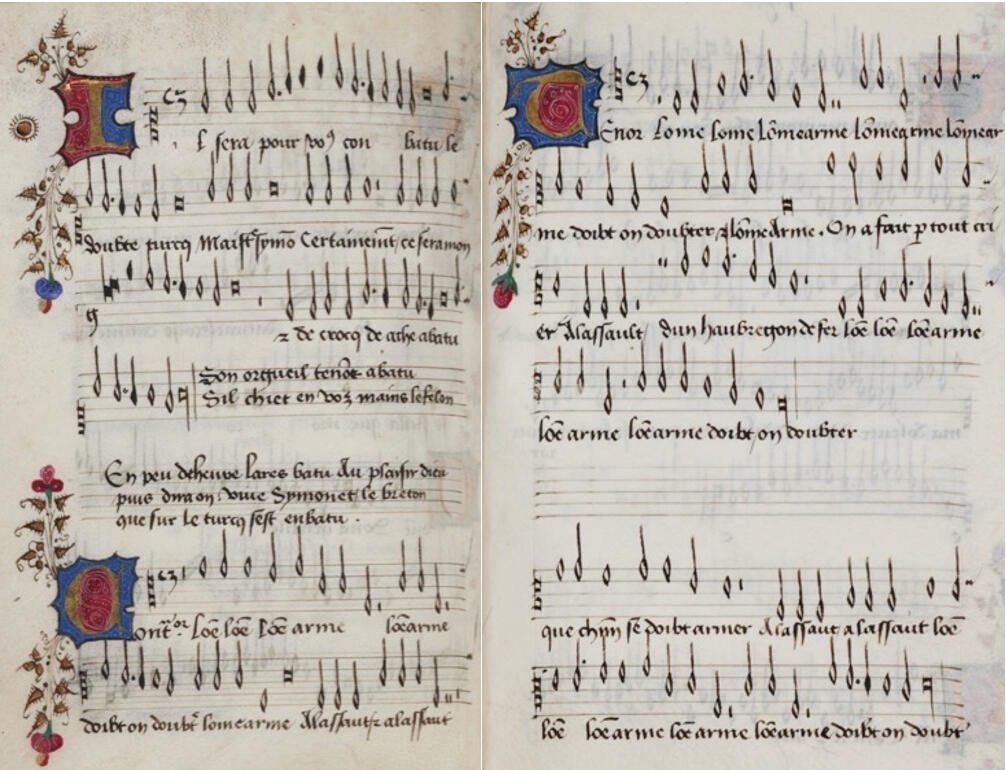 Il sera pour vo9 con batu le
doubte turcq Maistr symō Certainemt ce sera mon
g
z de crocq de ache abatu
Son orgueil tenōs abatu
Sil chiet en voz mains le felon
En peu deheure lares batu Au plaisir dieu
puis dira on viue Symonet le breton
que sur le turcq sest enbatu .
Contr'or Lōe lōe Lōe arme lōe arme
doibt on doubt' lome arme Alassault z alassaut
Tenor Lome lome lōmearme lōmearme lōmear
me doibt on doubter z lōme Arme . On a fait p tout cri
er Alassault dun haubregon de fer lōe lōe lōe arme
lōe arme lōe arme doibt on doubter
que chūn se doibt armer Alassaut alassaut lōe
lōe lōe arme lōe arme lōe arme doibt on doubt'